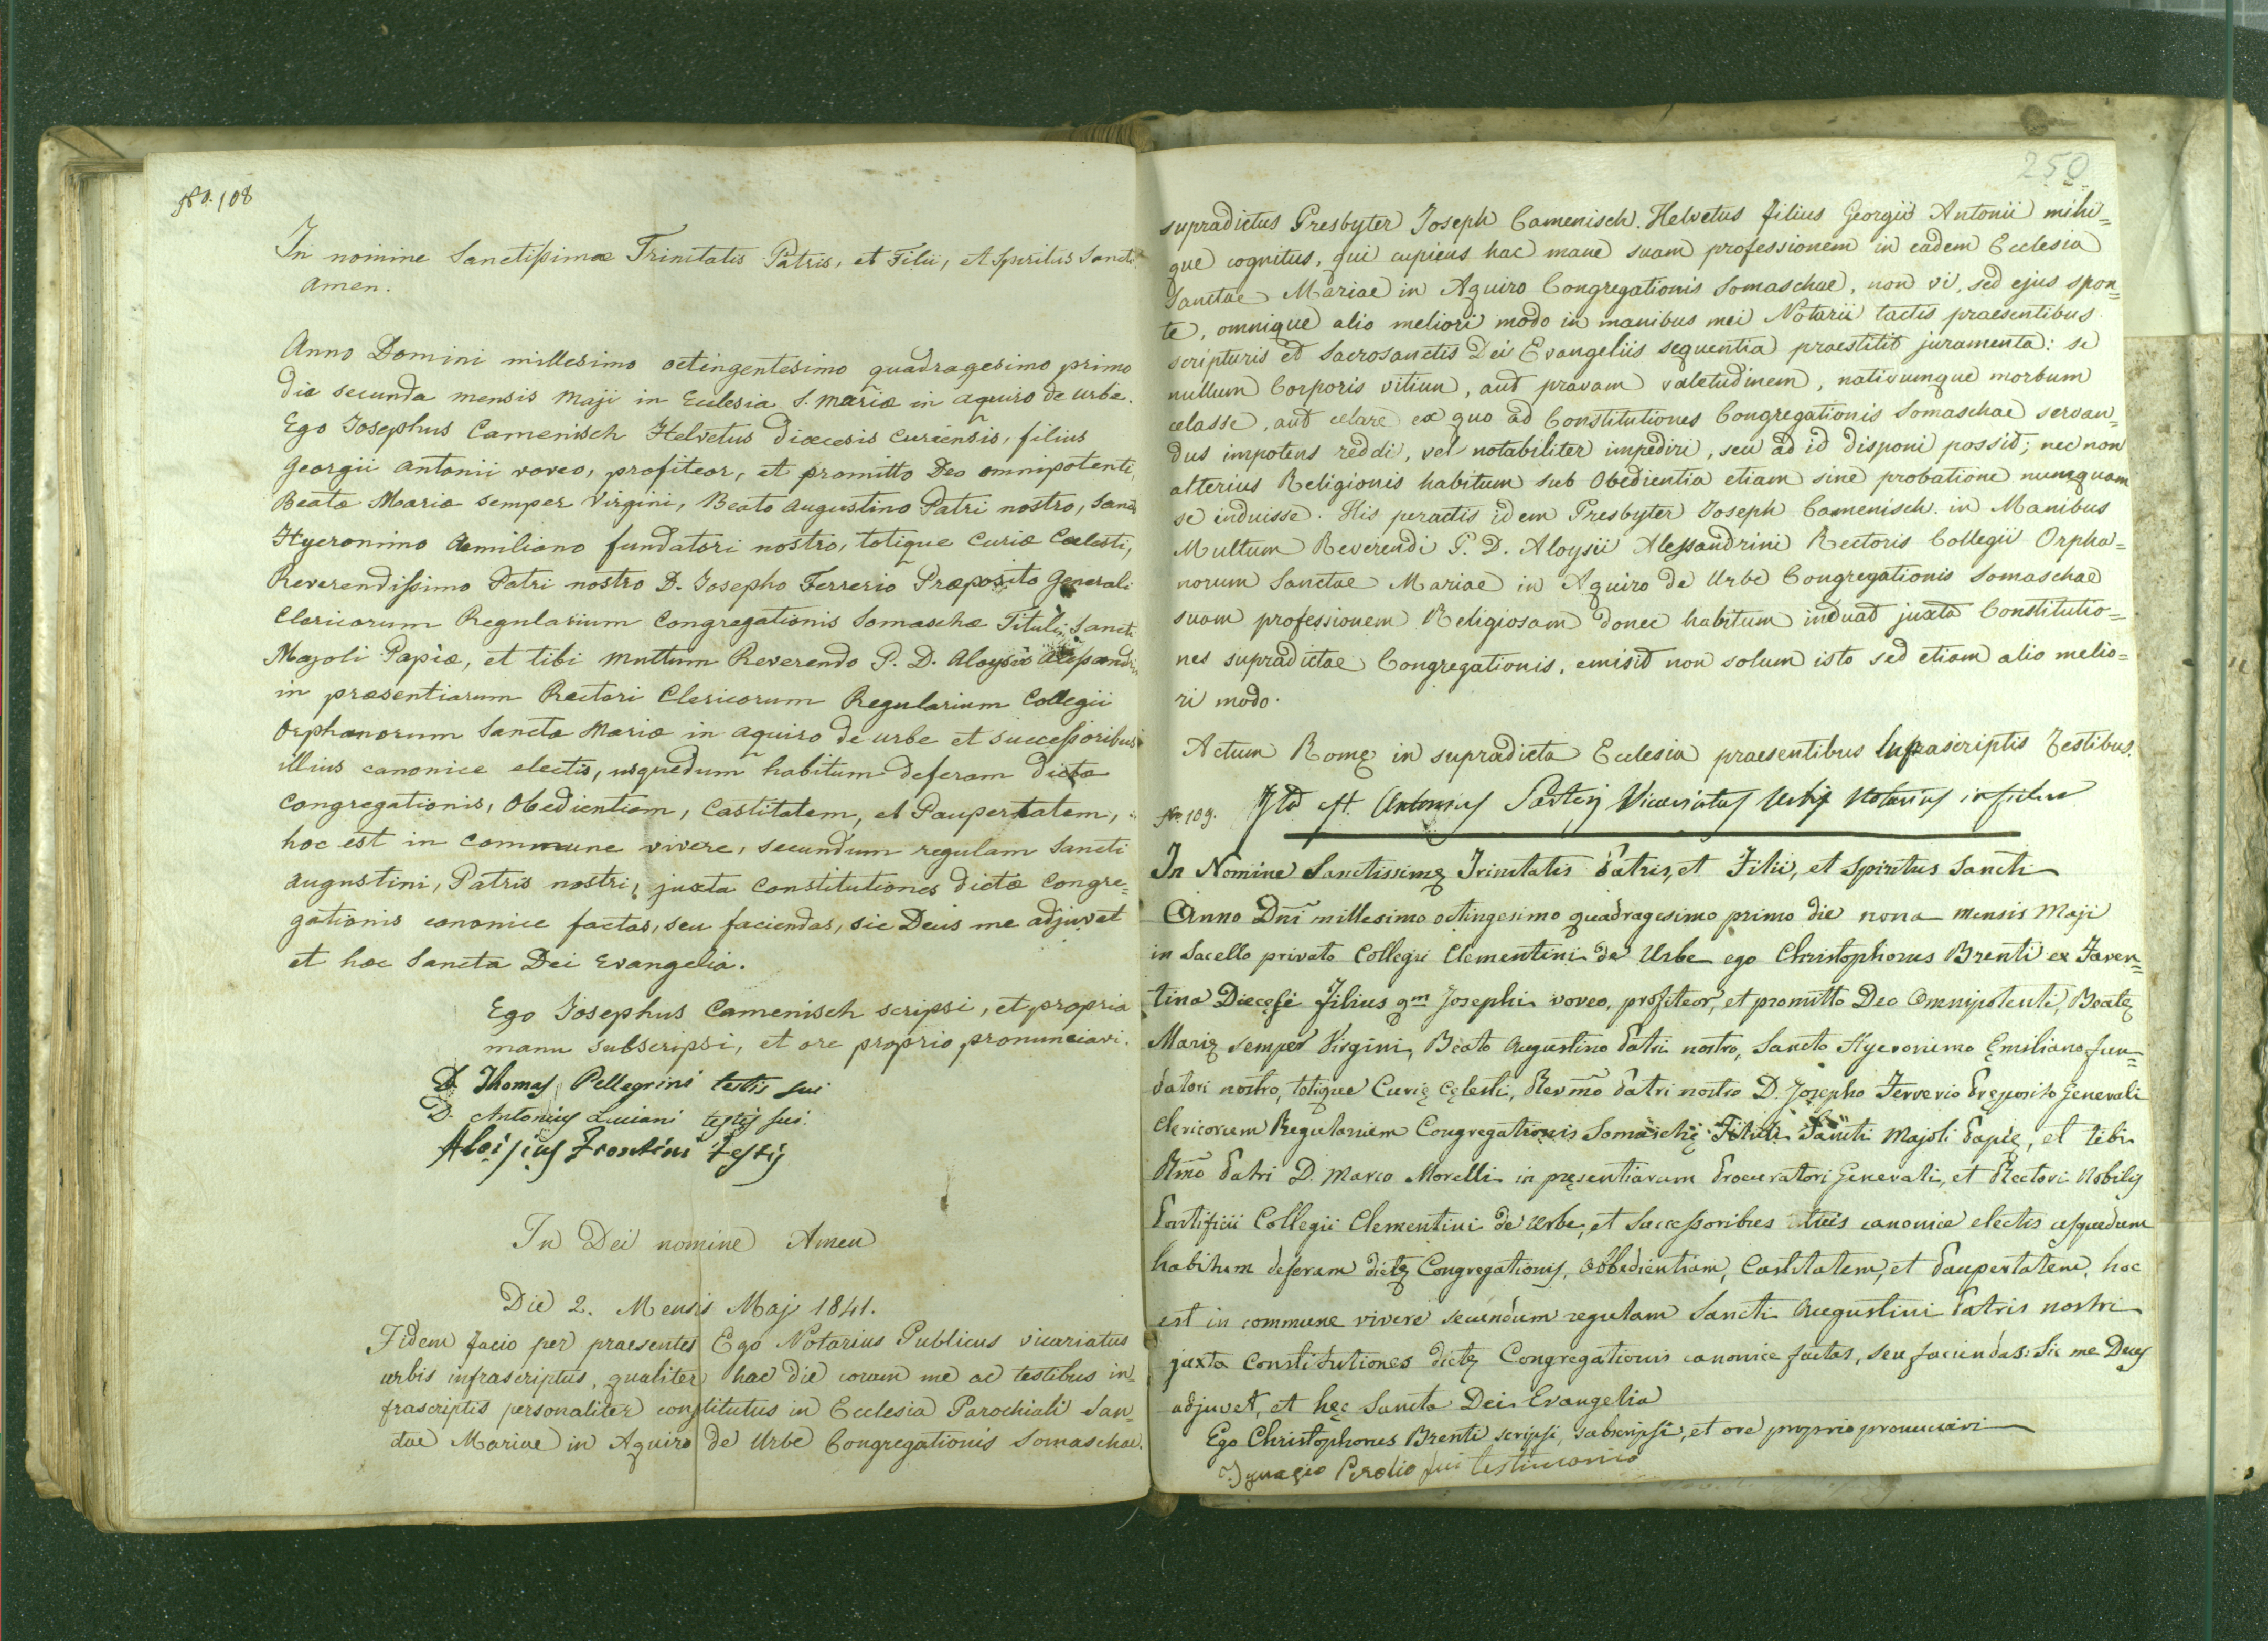 No. 108
In nomine Sanctissimæ Trinitatis Patris, et Filii, et Spiritus Sancti
Amen.
Anno Domini millesimo octingentesimo quadragesimo primo
die secunda mensis Maji in Ecclesia S. Mariæ in Aquiro de Urbe.
Ego Josephus Camenisch Helvetus diœcesis Curiensis, filius
Georgii Antonii voveo, profiteor, et promitto Deo omnipotenti,
Beatæ Mariæ semper Virgini, Beato Augustino Patri nostro, Sancto
Hyeronimo Æmiliano fundatori nostro, totique Curiæ Cœlesti,
Reverendissimo Patri nostro D. Josepho Ferrerio Præposito Generali
Clericorum Regularium Congregationis Somaschæ Tituli Sancti
Majoli Papiæ, et tibi multum Reverendo P. D. Aloysio Alessandrini
in præsentiarum Rectori Clericorum Regularium Collegii
Orphanorum Sanctæ Mariæ in Aquiro de urbe et successoribus
illius canonice electis, usquedum habitum deferam dictæ
Congregationis, Obedientiam, Castitatem, et Paupertatem,
hoc est in commune vivere, secundum regulam Sancti
Augustini, Patris nostri, juxta Constitutiones dictæ Congre=
gationis canonice factas, seu faciendas, sic Deus me adjuvet
et hæc Sancta Dei Evangelia.
Ego Josephus Camenisch scripsi, et propria
manu subscripsi, et ore proprio pronunciavi.
D. Thomas Pellegrini testis fui
D. Antonius Luciani testis fui.
Aloisius Frontini Testis
In Dei nomine Amen
Die 2. Mensis Maj 1841.
Fidem facio per praesentes Ego Notarius Publicus vicariatus
urbis infrascriptus, qualiter hac die coram me ac testibus in=
frascriptis personaliter constitutus in Ecclesia Parochiali San=
ctae Mariae in Aquiro de Urbe Congregationis Somaschae.
250
supradictus Presbyter Joseph Camenisch. Helvetus filius Georgii Antonii mihi=
que cognitus, qui cupiens hac mane suam professionem in eadem Ecclesia
Sanctae Mariae in Aquiro Congregationis Somaschae, non vi, sed ejus spon=
te, omnique alio meliori modo in manibus mei Notarii tactis praesentibus
scripturis et Sacrosanctis Dei Evangeliis sequentia praestitit juramenta: se
nullum Corporis vitiun, aut pravam valetudinem, nativumque morbum
celasse, aut celare ex quo ad Constitutiones Congregationis Somaschae servan=
dus impotens reddi, vel notabiliter impediri, seu ad id disponi possit; nec non
alterius Religionis habitum sub Obedientia etiam sine probatione numquam
se induisse. His peractis idem Presbyter Joseph Camenisch in Manibus
Multum Reverendi P. D. Aloysii Alessandrini Rectoris Collegii Orpha=
norum Sanctae Mariae in Aquiro de Urbe Congregationis Somaschae
suam professionem Religiosam donec habitum induat juxta Constitutio=
nes supradictae Congregationis, emisit non solum isto sed etiam alio melio=
ri modo.
Actum Romę in supradicta Ecclesia praesentibus Infrascriptis Testibus.
Ita est Antonius Vicariatus Urbis Notarius in fidem
No. 109.
In Nomine Sanctissimę Trinitatis Patris, et Filii, et Spiritus Sancti
Anno Dni millesimo octingesimo quadragesimo primo die nona mensis Maji
in Sacello privato Collegii Clementini de Urbe ego Christophorus Brenti ex Faven=
tina Diecęsi filius qm Josephi voveo, profiteor, et promitto Deo Omnipotenti, Beatę
Marię semper Virgini, Beato Augustino Patri nostro, Sancto Hyeronimo Ęmiliano fun=
datori nostro, totique Curię Cęlesti, Revmo Patri nostro D. Josepho Ferrerio Pręposito Generali
Clericorum Regularium Congregationis Somaschę Tituli Sancti Majoli Papię, et tibi
Rmo Patri D. Marco Morelli in pręsentiarum Procuratori Generali, et Rectori Nobilis
Pontificii Collegii Clementini de Urbe, et Successoribus tuis canonice electis usquedum
habitum deferam dictę Congregationis, Obbedientiam, Castitatem, et Paupertatem, hoc
est in commune vivere secundum regulam Sancti Augustini Patris nostri
juxta Constitutiones dictę Congregationis canonice factas, seu faciendas: Sic me Deus
adjuvet, et hęc Sancta Dei Evangelia
Ego Christophorus Brenti scripsi, subscripsi, et ore proprio pronunciavi
Ignazio fui testimonio